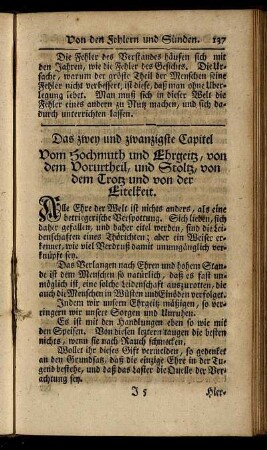 Von den Fehlern und Sünden. 137
Die Fehler des Verstandes häufen sich mit
den Jahren, wie die Fehler des Gesichts. Die Ur-
sache, warum der gröste Theil der Menschen seine
Fehler nicht verbessert, ist diese, daß man ohne Uber-
legung lebet. Man muß sich in dieser Welt die
Fehler eines andern zu Nutz machen, und sich da-
durch unterrichten lassen.
Das zwey und zwanzigste Capitel
Vom Hochmuth und Ehrgeitz, von
dem Vorurtheil, und Stoltz, von
dem Trotz und von der
Eitelkeit.
Alle Ehre der Welt ist nichts anders, als eine
betriegerische Verspottung. Sich lieben, sich
daher gefallen, und daher eitel werden, sind die Lei-
denschaften eines Thörichten; aber ein Weiser er-
kennet, wie viel Verdruß damit unumgänglich ver-
knüpfet sey.
Das Verlangen nach Ehren und hohem Stan-
de ist den Menschen so natürlich, daß es fast un-
möglich ist, eine solche Leidenschaft auszurotten, die
auch die Menschen in Wüsten und Einöden verfolget.
Indem wir unsern Ehrgeitz mäßigen, so ver-
ringern wir unsere Sorgen und Unruhen.
Es ist mit den Handlungen eben so wie mit
den Speisen. Von diesen letztern taugen die besten
nichts, wenn sie nach Rauch schmecken,
Wollet ihr dieses Gift vermeiden, so gedenket
an den Grundsatz, daß die einzige Ehre in der Tu-
gend bestehe, und daß das Laster die Quelle der Ver-
achtung sey.
J 5 Hier-